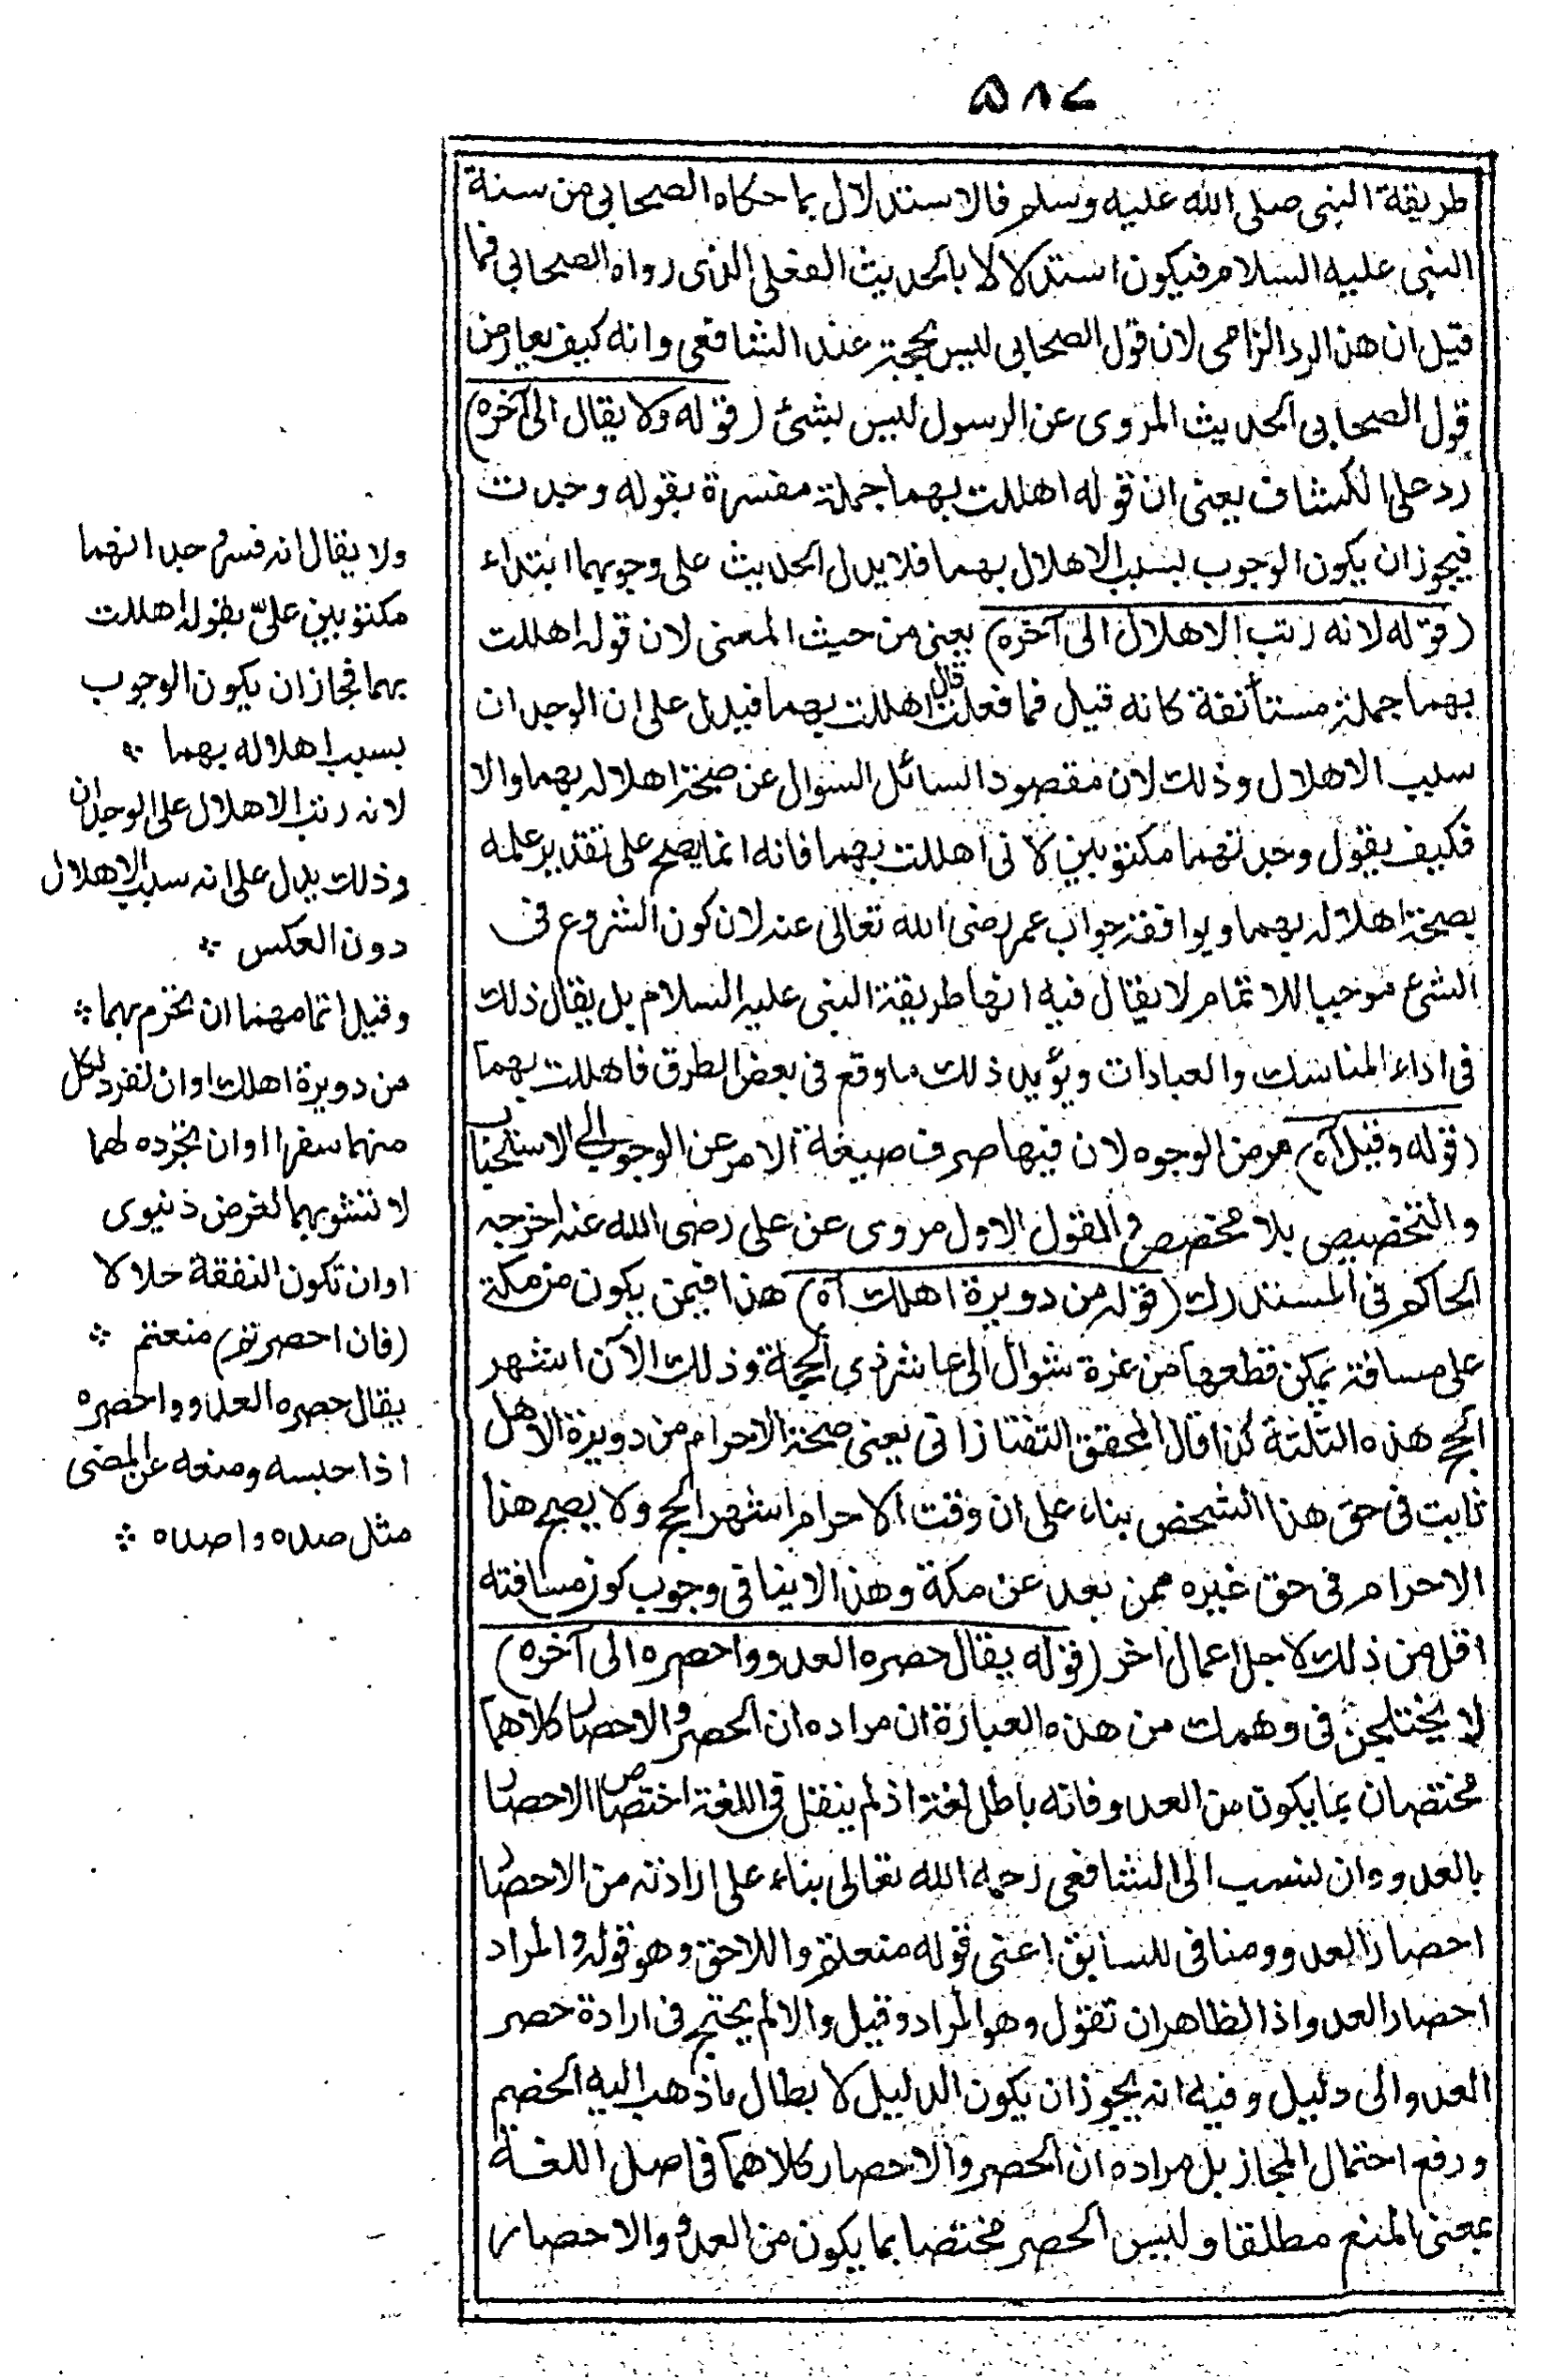 ٥٨٧
طريقة النبى صلى الله عليه وسلم فالاستدلال بما حكاه الصحابى من سنة
النبى عليه السلام فيكون استدلالا بالحديث الفعلى الذى رواه الصحابى فما
قيل ان هذا الرد الزامى لان قول الصحابى ليس بحجة عند الشافعى وانه كيف يعارض
قول الصحابى الحديث المروى عن الرسول ليس بشئ (قوله ولا يقال الى آخره)
رد على الكشاف يعنى ان قوله اهللت بهما جملة مفسرة بقوله وجدت
فيجوز ان يكون الوجوب بسبب الاهلال بهما فلا يدل الحديث على وجوبهما ابتداء
(قوله لانه رتب الاهلال الى آخره) يعنى من حيث المعنى لان قوله اهللت
بهما جملة مستأنفة كانه قيل فما فعلت قال اهللت بهما فيدل على ان الوجدان
سبب الاهلال وذلك لان مقصود السائل السوال عن صحة اهلاله بهما والا
فكيف يقول وجدتهما مكتوبين لانى اهللت بهما فانه انما يصح على تقدير علمه
بصحة اهلاله بهما ويوافقه جواب عمر رضى الله تعالى عنه لان كون الشروع فى
الشرع موجبا للاتمام لا يقال فيه انها طريقة النبى عليه السلام بل يقال ذلك
فى اداء المناسك والعبادات ويؤيد ذلك ما وقع فى بعض الطرق فاهللت بهما
(قوله وقيل آه) مرض الوجوه لان فيها صرف صيغة الامر عن الوجوب الى الاستحباب
والتخصيص بلا مخصص والقول الاول مروى عن على رضى الله عنه اخرجه
الحاكم فى المستدرك (قوله من دويرة اهلك آه) هذا فيمن يكون من مكة
على مسافة يمكن قطعها من غرة شوال الى عاشر ذى الحجة وذلك الآن اشهر
الحج هذه الثلثة كذا قال المحقق التفتازانى يعنى صحة الاحرام من دويرة الاهل
ثابت فى حق هذا الشخص بناء على ان وقت الاحرام اشهر الحج ولا يصح هذا
الاحرام فى حق غيره ممن بعد عن مكة وهذا لا ينافى وجوب كون مسافته
اقل من ذلك لاجل اعمال اخر (قوله يقال حصره العدو واحصره الى آخره)
لا يختلجن فى وهمك من هذه العبارة ان مراده ان الحصر والاحصار كلاهما
مختصان بما يكون من العدو فانه باطل لغة اذ لم ينقل فى اللغة اختصاص الاحصار
بالعدو وان نسب الى الشافعى رحمه الله تعالى بناء على ارادته من الاحصار
احصار العدو ومنافى للسابق اعنى قوله منعتم واللاحق وهو قوله والمراد
احصار العدو اذ الظاهر ان تقول وهو المراد وقيل والا لم يحتج فى ارادة حصر
العدو الى دليل وفيه انه يجوز ان يكون الدليل لابطال ما ذهب اليه الخصم
ورفع احتمال المجاز بل مراده ان الحصر والاحصار كلاهما فى اصل اللغة
بمعنى المنع مطلقا وليس الحصر مختصا بما يكون من العدو والاحصار
ولا يقال انه فسر وجدانهما
مكتوبين علىّ بقوله اهللت
بهما فجاز ان يكون الوجوب
بسبب اهلاله بهما
لانه رتب الاهلال على الوجدان
وذلك يدل على انه سبب الاهلال
دون العكس
وقيل اتمامهما ان تحرم بهما
من دويرة اهلك او ان تفرد لكل
منهما سفرا او ان تجرده لهما
لا تشوبهما لغرض دنيوى
او ان تكون النفقة حلالا
(فان احصرتم) منعتم
يقال حصره العدو واحصره
اذا حبسه ومنعه عن المضى
مثل صده واصده